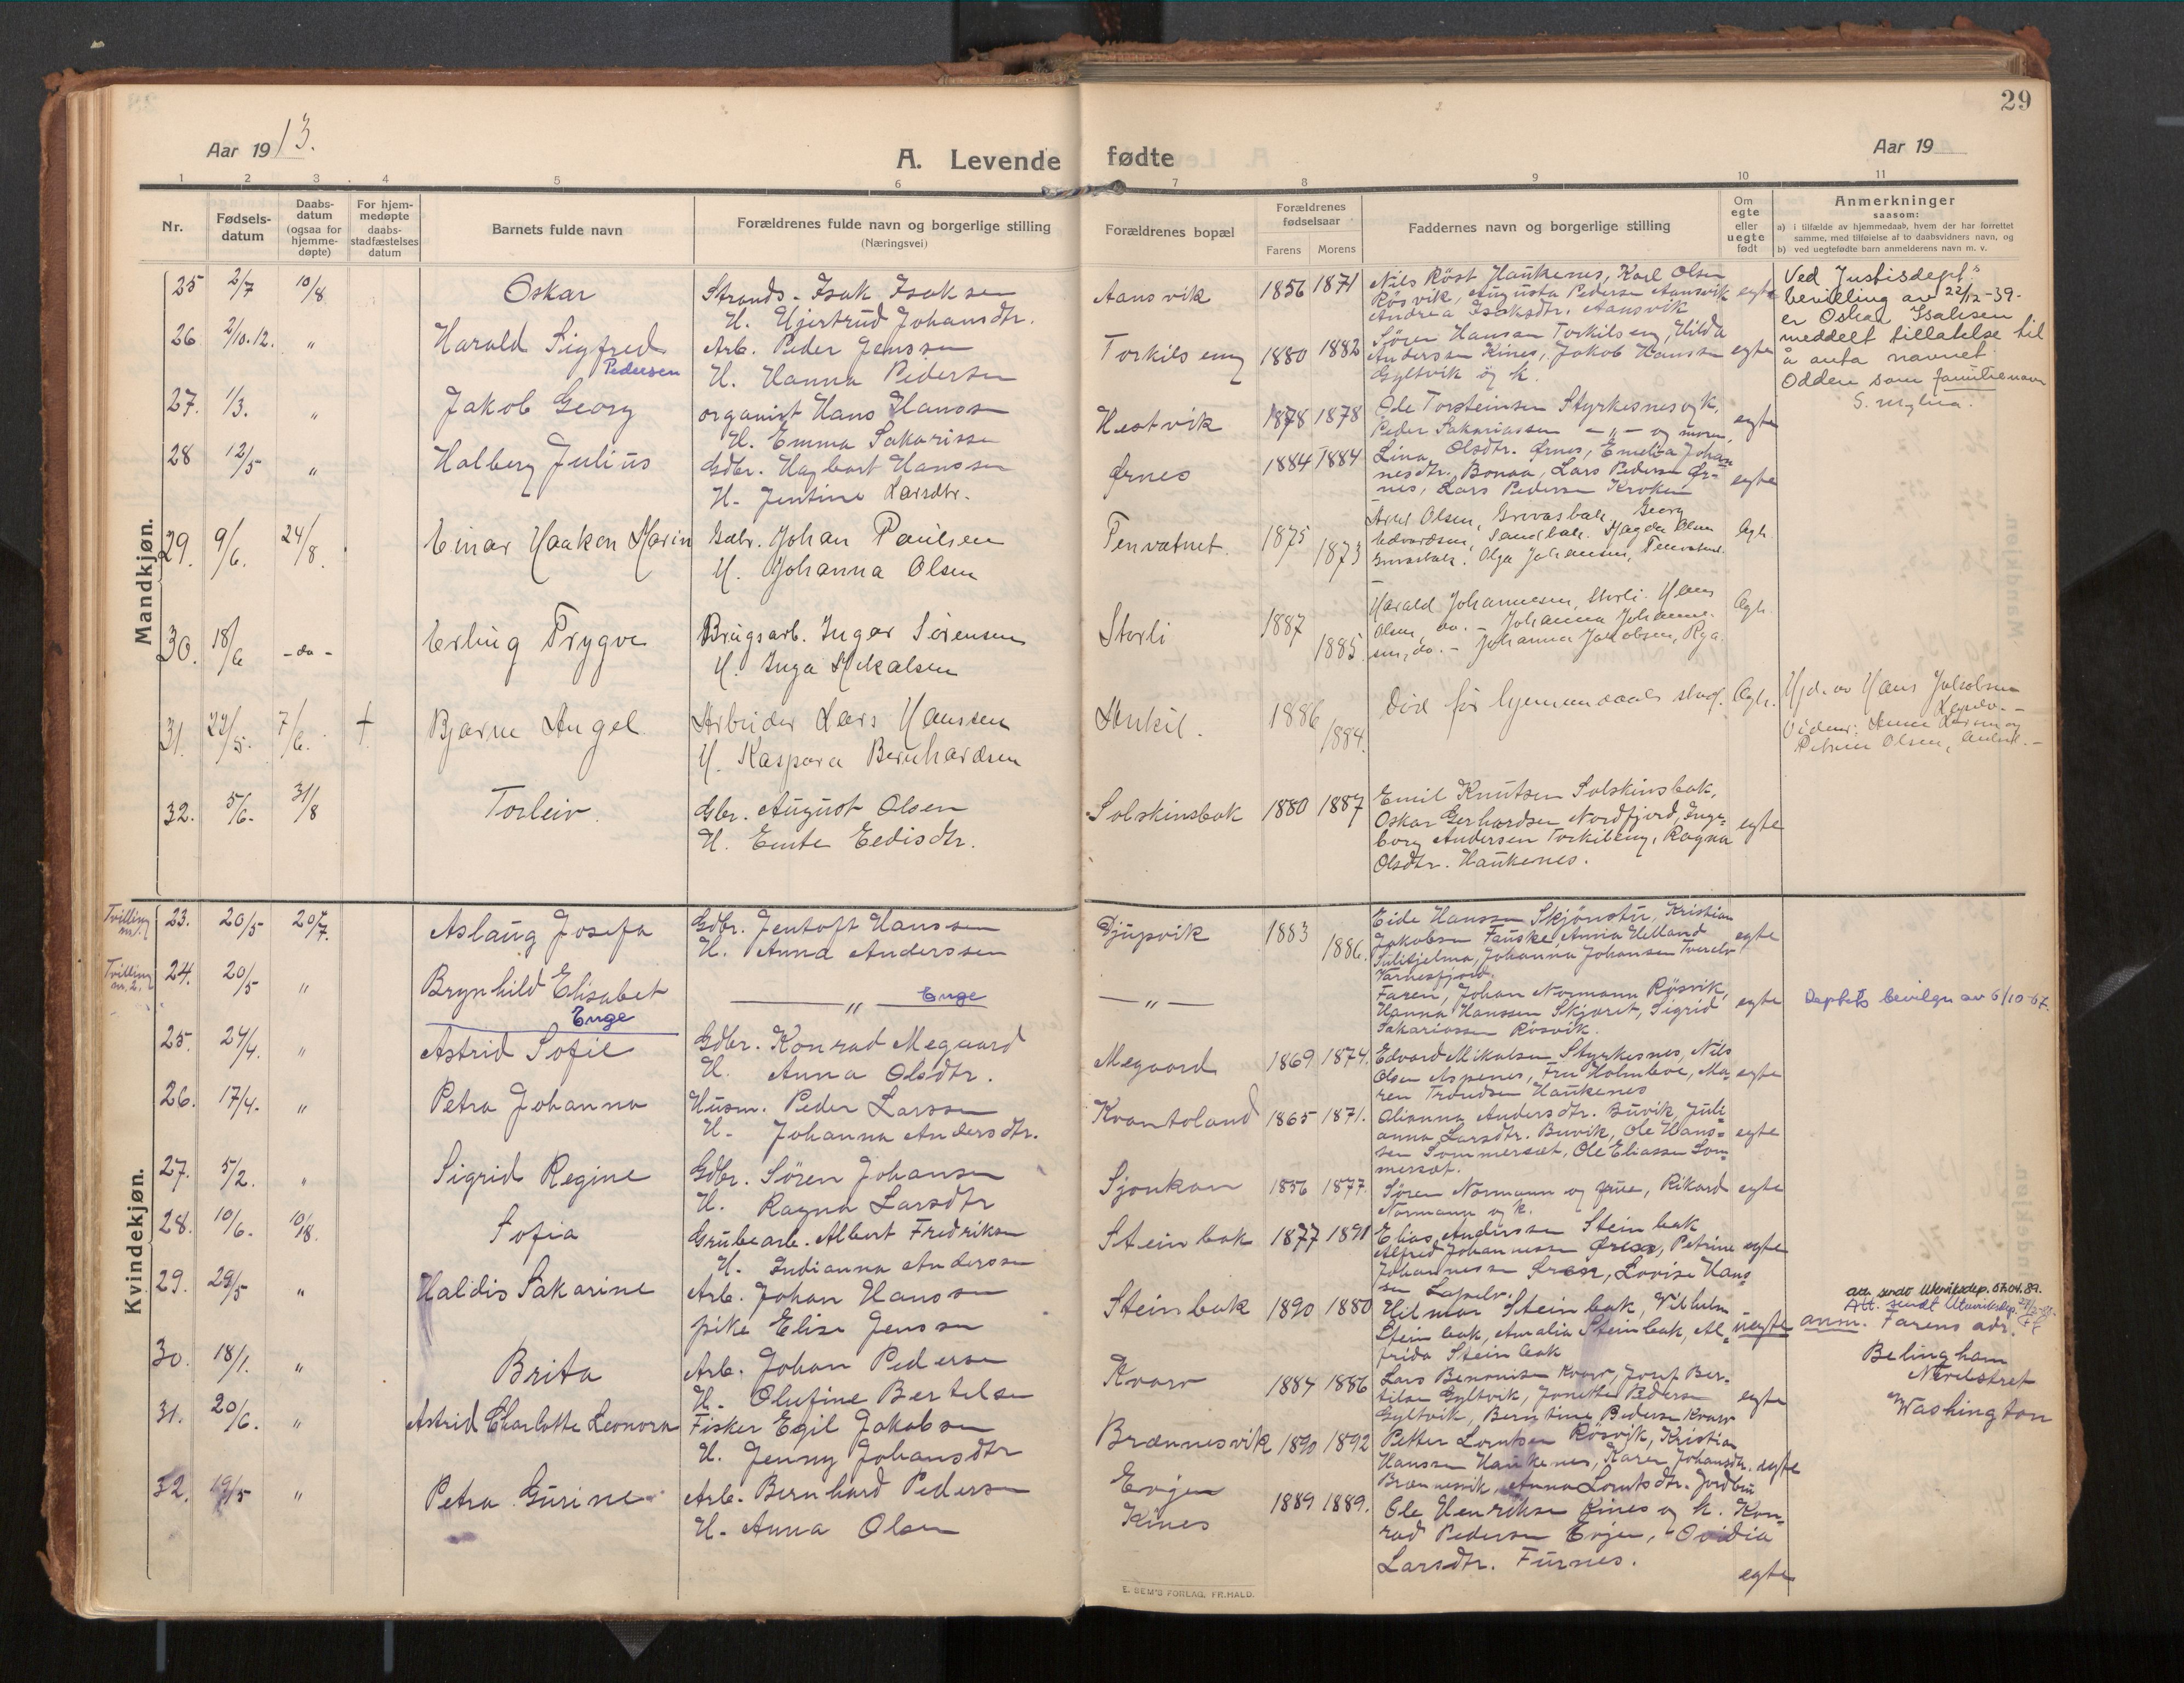 29
Aar 1913.
A. Levende fødte
Aar 19
1 2 3 4 5 6 7 8 9 10 11
Nr.
Fødsels-
datum
Daabs-
datum
(ogsaa for
hjemme-
døpte)
For hjem-
medøpte
daabs-
stadfæstelses
datum
Barnets fulde navn
Forældrenes fulde navn og borgerlige stilling
(Næringsvei)
Forældrenes bopæl
Forældrenes
fødselsaar
Farens Morens
Faddernes navn og borgerlige stilling
Om
egte
eller
uegte
født
Anmerkninger
saasom:
a) i tilfælde av hjemmedaab, hvem der har forrettet
samme, med tilføielse af to daabsvidners navn, og
b) ved uegtefødte barn anmelderens navn m. v.
Mandkjøn.
25 2/7 10/8 Oskar
Strands. Isak Isaksen
H. Gjertrud Johansdtr.
Aansvik 1856 1871
Nils Röst Haukenes, Karl Olsen
Rösvik, Augusta Pedersen Aansvik
Andrea Isaksdtr. Aansvik
egte
Ved Justisdept.s
bevilling av 22/12-39.
er Oskar Isaksen
meddelt tillatelse til
å anta navnet
Odden som familienavn
26 2/10.12. " Harald Sigfred
Pedersen
Arb. Peder Jenssen
H. Hanna Pedersen
Torkilseng 1880 1882
Sören Hansen Torkilseng, Hilda
Andersen Kines, Jakob Hanssen
Gyltvik og k.
egte
27. 1/3. " Jakob Georg
organist Hans Hanssen
H. Emma Sakarissen
Hestvik 1878 1878
Ole Torsteinsen Styrkesnesvik,
Peder Sakariassen — „ — og moren,
egte
28 12/5 " Halberg Julius
Gdbr. Hagbart Hanssen
H. Jentine Larsdtr.
Ørnes 1884 1884
Lina Olsdtr. Ørnes, Emelia Johan
nesdtr. Bonaa, Lars Pedersen Ør-
nes, Lars Pedersen Kroken
egte
29. 9/6. 24/8. Einar Haaken Marin
Gdbr. Johan Paulsen
H. Johanna Olsen
Fenvatnet. 1875 1873
Olsen, Grovasbak, Georg
Edvardsen, Sandbak. Magda Olsen
Olga Johansen, Fenvatnet.
Egte.
30. 18/6 - do - Erling Trygve
Brugsarb. Ingar Sørensen
H. Inga Mikalsen
Storli 1887 1885
Harald Johannesen, Storli. Hans
Olsen, do. - Johanna Johanne-
sen, do. - Johanna Jakobsen,
Egte.
31. 22/5. 7/6. + Bjarne Angel
Arbeider Lars Hanssen
H. Kaspara Bernhardsen
1886 1884.
Död før hjemmedaabs stadf. Egte.
Hjd. av Hans Jakobsen
Petrine Olsen,
32. 5/6- 31/8 Torleiv.
Gbr. August Olsen
H. Ente Eedisdtr.
Solskinsbak 1880 1887
Emil Knutsen Solskinsbak,
Oskar Gerhardsen Nordfjord, Inge-
borg Andersen Torkilseng, Ragna
Olsdtr. Haukenes.
egte
Kvindekjøn.
Tvilling
nr. 1
23. 20/5 20/7. Aslaug Josefa
Gdbr. Jentoft Hanssen
H. Anna Anderssen
Djupvik 1883 1886.
Eide Hanssen Skjönstu, Kristian
Jakobsen Fauske, Anna Helland
Sulitjelma, Johanna Johansen Tverelv
Varnesfjord.
egte
Tvilling
nr. 2.
24. 20/5 " Brynhild Elisabet
Enge
— „ — Enge
— „ —
Faren, Johan Normann Rösvik,
Hanna Hanssen Skjaret, Sigrid
Sakariassen Rösvik.
egte
Deptets bevilgn av 6/10-67.
25. 24/4. " Astrid Sofie
Gdbr. Konrad Megaard
H. Anna Olsdtr.
Megaard 1869 1874.
Edvard Mikalsen Styrkesnes, Nils
Olsen Aspenes, Fru Holmboe, Ma-
ren Trondsen Haukenes
egte
26. 17/4. " Petra Johanna
Husm. Peder Larssen
H. Johanna Andersdtr.
Kvantoland 1865 1871.
Alianna Andersdtr. Buvik, Juli-
anna Larsdtr. Buvik, Ole Hans-
sen Sommersæt, Ole Eliassen Som-
mersæt.
egte
27. 5/2. " Sigrid Regine
Gdbr. Sören Johansen
H. Ragna Larsdtr
Sjonkan 1856 1877.
Sören Normann og frue, Rikard
Normann og k.
egte
28. 10/6. 10/8. Sofia
Grubearb. Albert Fredriksen
H. Indianna Anderssen
Steinbak 1877 1891
Elias Anderssen Steinbak
Alfred Johannessen Ørnes, Petrine
Johannessen Ørnes, Lovise Hans-
sen Lapelv.
egte
29. 29/5 " Haldis Sakarine
Arb. Johan Hanssen
pike Elise Jenssen
Steinbak 1890 1880
Hilmar Steinbak, Vilhelm
Steinbak, Amalia Steinbak, Al-
frida Steinbak
uegte
att. sendt Utenriksdep. 07.04.89.
Att. sendt Utenriksdep.
anm. Farens adr.
Belingham
Washington
30. 18/1. " Brita
Arb. Johan Pedersen
H. Olufine Bertelsen
Kvarv 1884 1886
Lars Benonisen Kvarv, Josef Ber-
tilsen Gyltvik, Jonette Pedersen
Gyltvik, Berntine Pedersen Kvarv
egte
31. 20/6. " Astrid Charlotte Leonora
Fisker Egil Jakobsen
H. Jenny Johansdtr
Brænnesvik 1890 1892
Petter Lorntsen Rösvik, Kristian
Hanssen Haukenes, Karen Johansdtr.
Brænnesvik, Anna Lorntsdtr. Jordbru
egte
32. 19/5 " Petra Gurine
Arb. Bernhard Pedersen
H. Anna Olsen
Evjen
Kines
1889 1889.
Ole Henriksen Kines og k. Kon-
rad Pedersen Evjen, Ovidia
Larsdtr. Furnes.
egte
E. SEM'S FORLAG, FR.HALD.